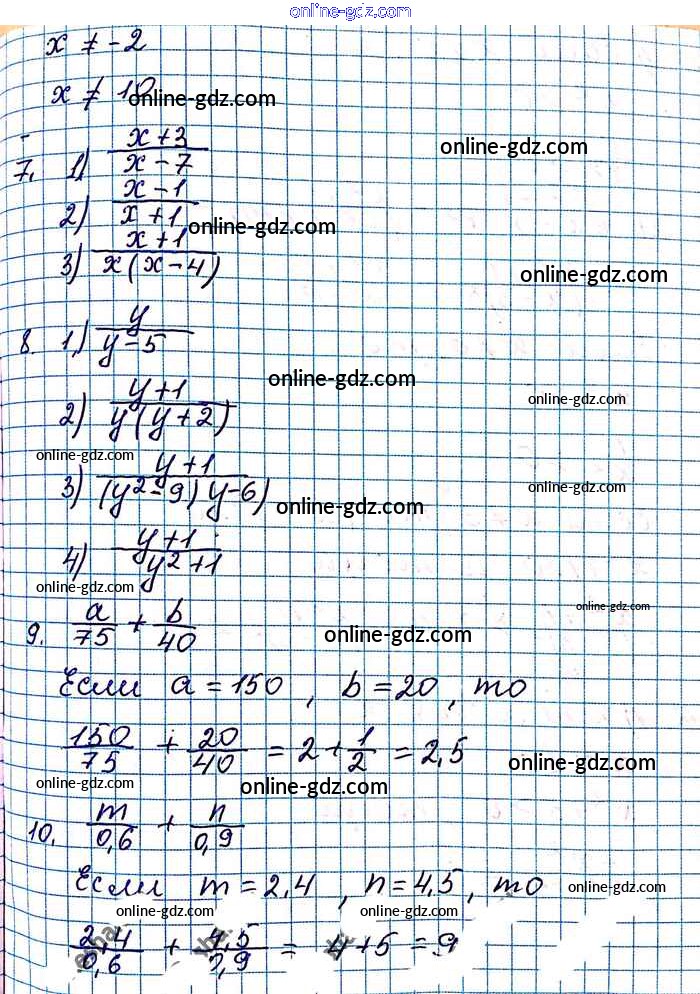 online-gdz.com
x ≠ -2
x ≠ 10
online-gdz.com
online-gdz.com
7. 1) (x+3)/(x-7)
2) (x-1)/(x+1)
online-gdz.com
3) (x+1)/(x(x-4))
online-gdz.com
8. 1) y/(y-5)
online-gdz.com
online-gdz.com
2) (y+1)/(y(y+2))
online-gdz.com
3) (y+1)/((y²-9)(y-6)
online-gdz.com
online-gdz.com
4) (y+1)/(y²+1)
online-gdz.com
online-gdz.com
9. a/75 + b/40
online-gdz.com
Если a = 150, b = 20, то
150/75 + 20/40 = 2 + 1/2 = 2,5
online-gdz.com
online-gdz.com
online-gdz.com
10. m/0,6 + n/0,9
Если m = 2,4, n = 4,5, то
online-gdz.com
online-gdz.com
online-gdz.com
2,4/0,6 + 4,5/0,9 = 4+5 = 9